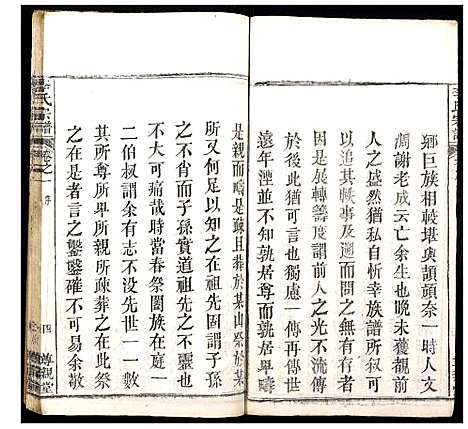 鄉巨族相較堪與頡頏奈一時人文
凋謝老成云亡余生也晚未獲覩前
人之盛然猶私自忻幸族譜所載可
以追其軼事及遍而問之無有存者
因是展轉籌度謂前人之光不流傳
於後此猶可言也獨慮一傳再傳
遠年湮並其孰居尊而孰居卑疇
是親而疇是疎且葬於某山祭於某
所又何忍言哉昭穆紊亂固謂子孫
之不肖而子孫實道祖先之不靈也
不大可痛哉時當春祭闔族在庭有
二伯叔謂余曰子不沒先世一一數
其所尊所卑所親所疎葬之在此祭
之在是者言之鑿鑿確不可易余敬
李氏宗譜
卷之一
序
四
尊親堂